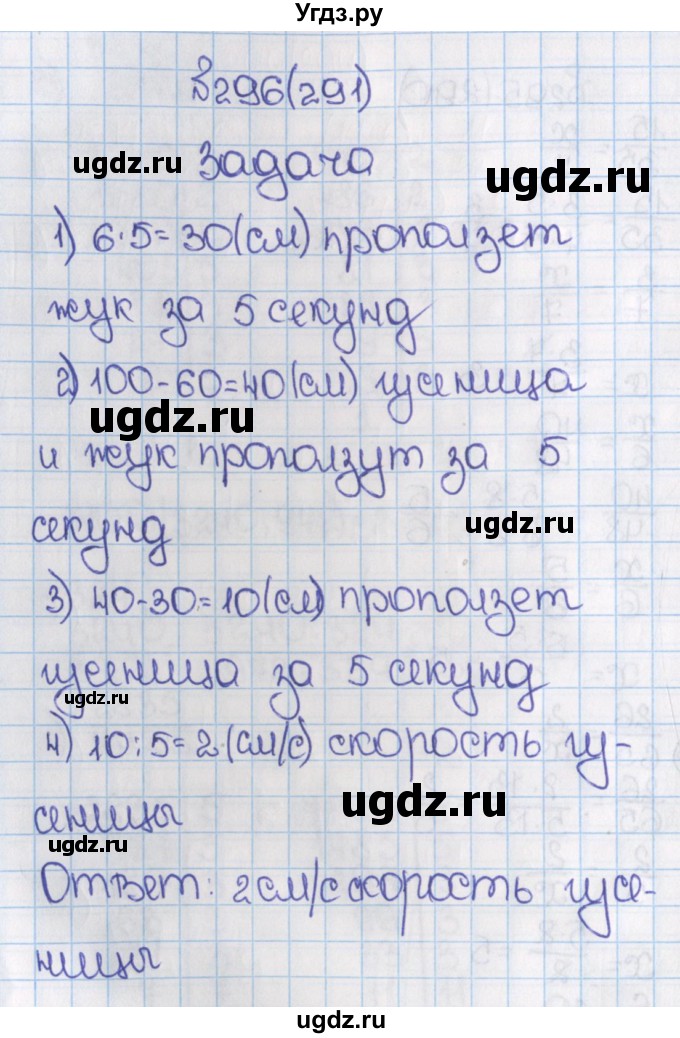 Угдз.ру
№296(291)
ugdz.ru Задача ugdz.ru
1) 6·5=30(см) проползет
жук за 5 секунд
2) 100-60=40(см) гусеница
ugdz.ru
и жук проползут за 5
секунд ugdz.ru
3) 40-30=10(см) проползет
гусеница за 5 секунд
ugdz.ru
4) 10:5=2(см/с) скорость гу-
сеницы ugdz.ru
ugdz.ru
Ответ: 2см/с скорость гусе-
ницы
ugdz.ru